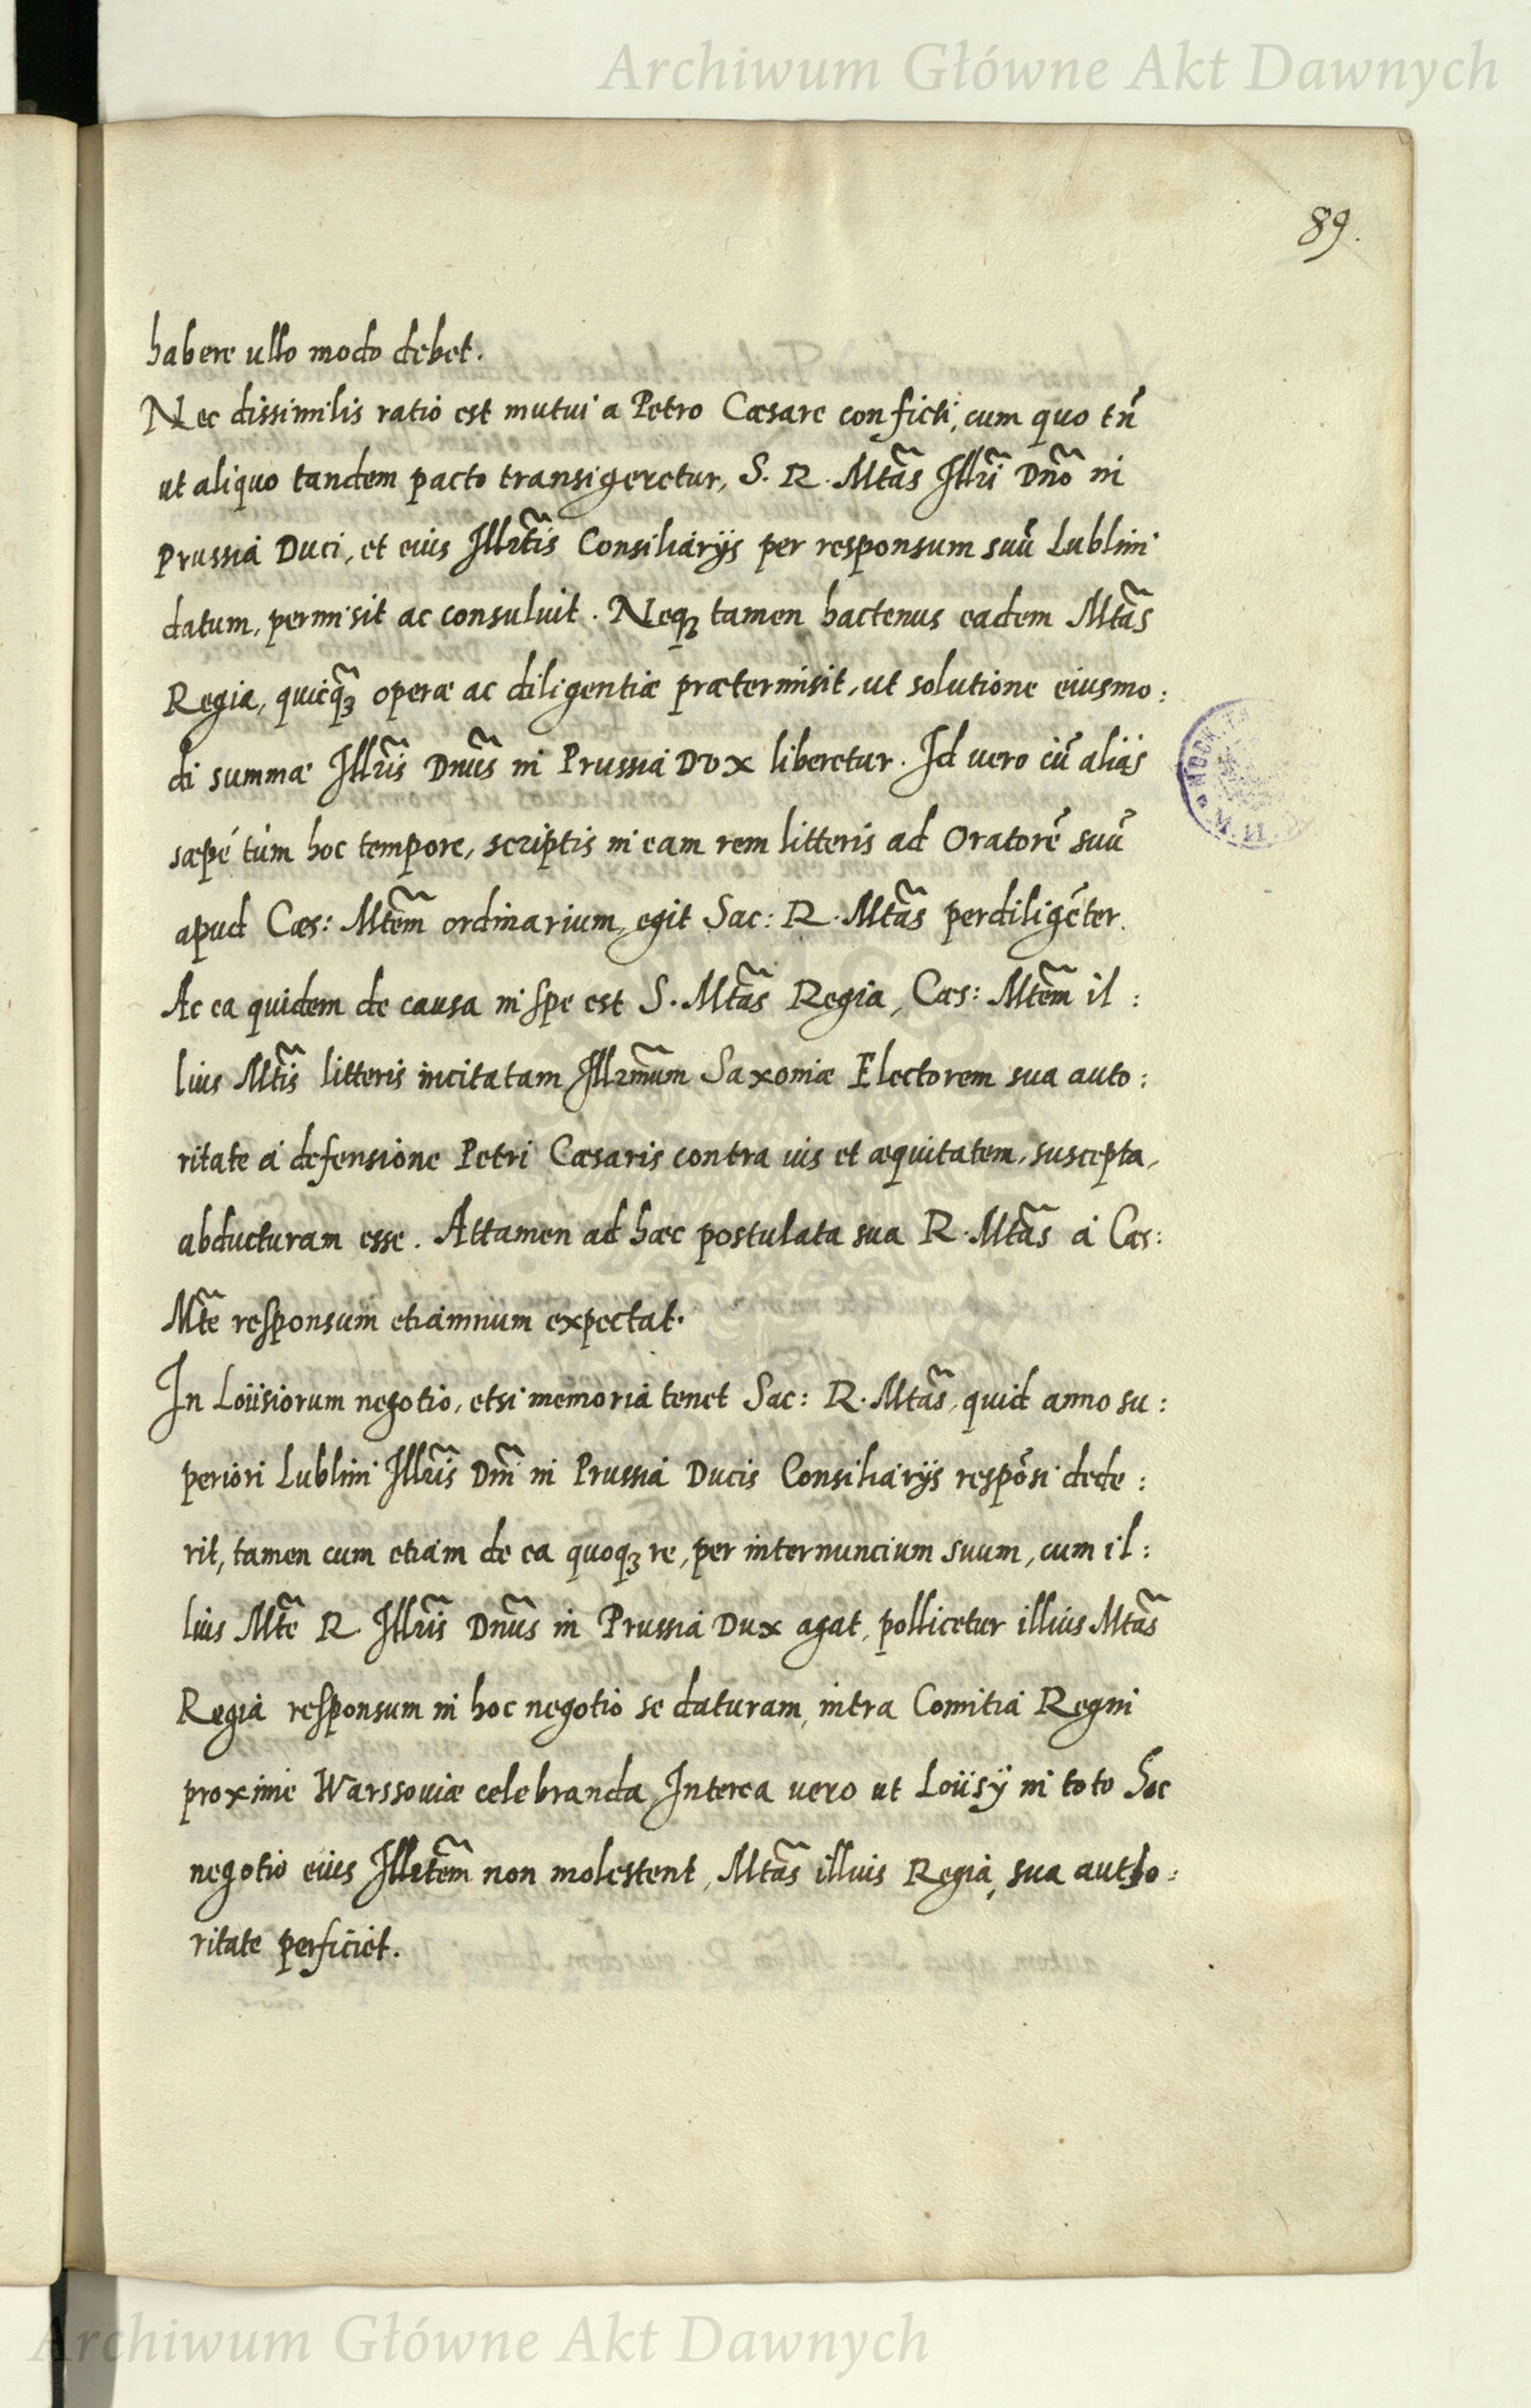 Archiwum Główne Akt Dawnych
89.
habere ullo modo debet.
Nec dissimilis ratio est mutui a Petro Cæsare conficti, cum quo tñ
ut aliquo tandem pacto transigeretur, S. R. Mtãs Illri͂ Dnõ in
Prussia Duci, et eius Illrtĩs Consiliarijs per responsum suũ Lublini
datum, permisit ac consuluit. Neqꝫ tamen hactenus eadem Mtãs
Regia, quicq̃ꝫ operæ ac diligentiæ prætermisit, ut solutione eiusmo:
di summæ Illrĩs Dnũs in Prussia Dux liberetur. Id vero cũ aliàs
sæpè tùm hoc tempore, scriptis in eam rem litteris ad Oratorẽ suũ
apud Cæs: Mtẽm ordinarium, egit Sac: R. Mtãs perdiligẽter.
Ac ea quidem de causa in spe est S. Mtãs Regia, Cæs: Mtẽm il:
lius Mtĩs litteris incitatam Illrmũm Saxoniæ Electorem sua auto:
ritate à defensione Petri Cæsaris contra ius et æquitatem, suscepta,
abducturam esse. Attamen ad hæc postulata sua R. Mtãs à Cæs:
Mtẽ responsum etiamnum expectat.
In Loüsiorum negotio, etsi memoria tenet Sac: R. Mtãs, quid anno su:
periori Lublini Illrĩs Dnĩ in Prussia Ducis Consiliarijs respõsi dede:
rit, tamen cum etiam de ea quoqꝫ re, per internuncium suum, cum il:
lius Mtẽ R. Illrĩs Dnũs in Prussia Dux agat, pollicetur illius Mtãs
Regia responsum in hoc negotio se daturam, intra Comitia Regni
proxime Warssoviæ celebranda. Interea vero ut Loüsÿ in toto hoc
negotio eius Illrtẽm non molestent, Mtãs illius Regia, sua autho:
ritate perficiet.
Archiwum Główne Akt Dawnych